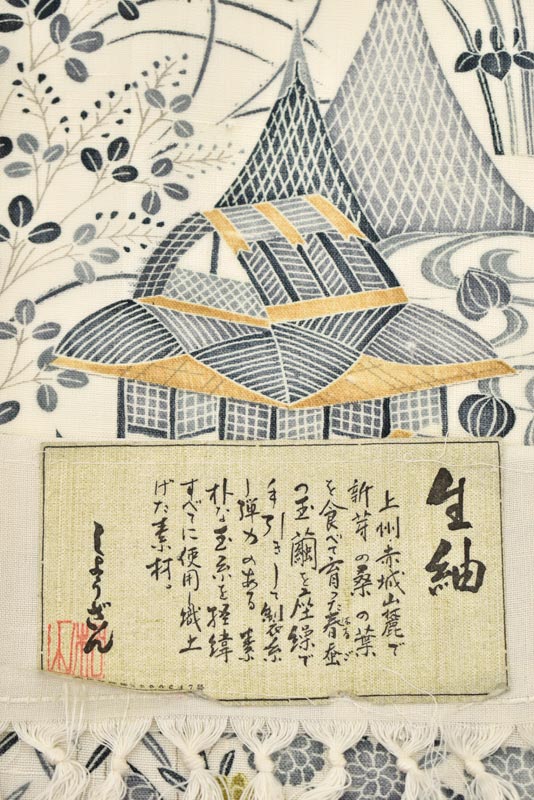 生紬
上州赤城山麓で
新芽の桑の葉
を食べて育った春蚕
はるご
の玉繭を座繰で
手引きして製糸
し弾力のある素
朴な玉糸を経緯
すべてに使用し織上
げた素材。
しょうざん